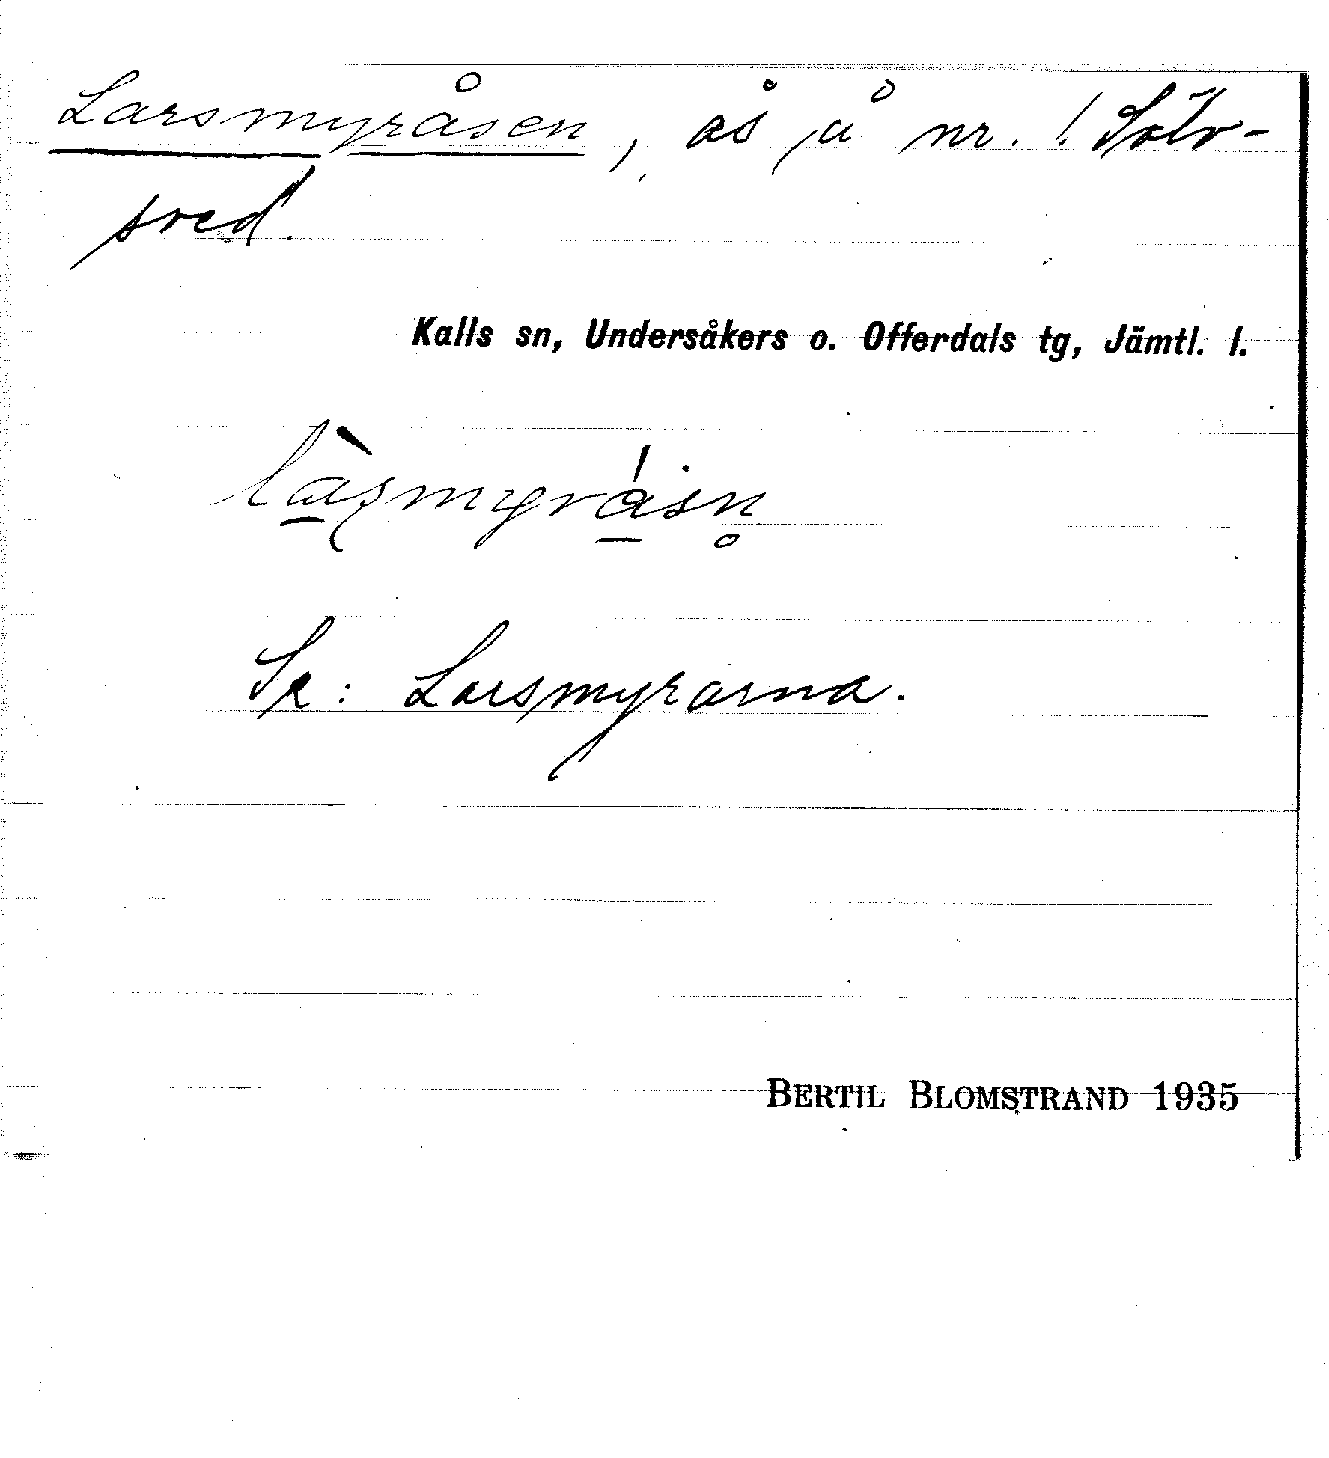 Larsmyråsen, ås å nr. 1 Sölv-
sved.
Kalls sn, Undersåkers o. Offerdals tg, Jämtl. l.
Se: Larsmyrarna.
BERTIL BLOMSTRAND 1935